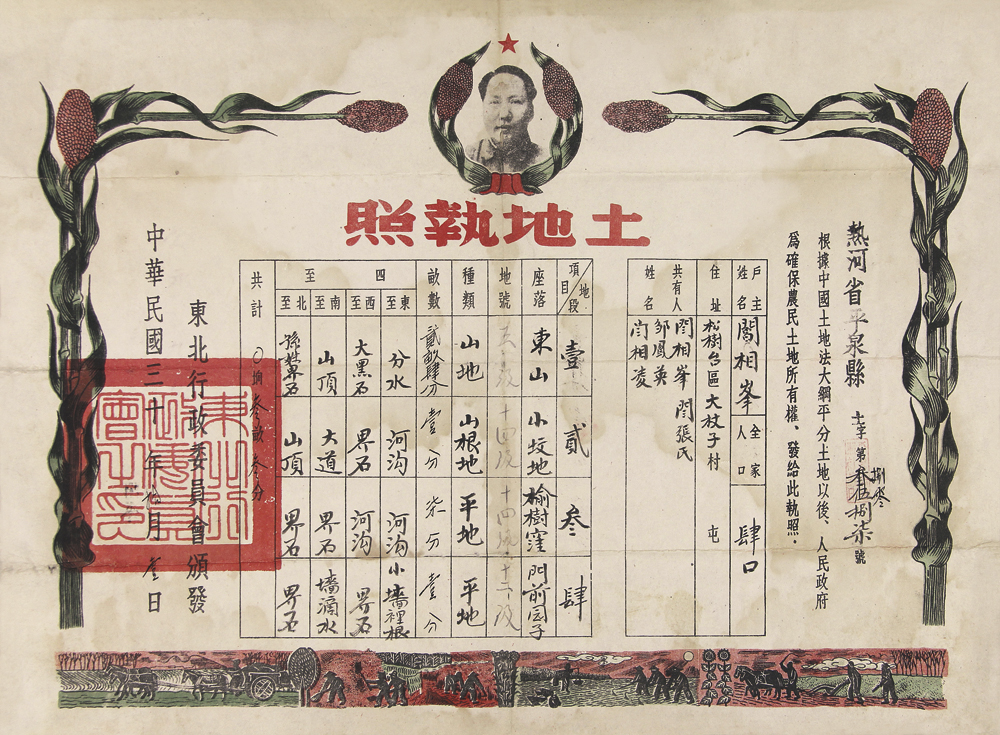 土地執照
熱河省平泉縣
土字第 號
根據中國土地法大綱平分土地以後、人民政府
為確保農民土地所有權、發給此執照.
戶主姓名 閻相峯 全家人口 肆口
住址 松樹台區大杖子村 屯
共有人姓名 閆相峯 閆張氏
邹鳳英
閆相凌
項目 地段 壹 貳 叁 肆
座落 東山 小坟地 榆樹窪 門前园子
地號 十四 十四
種類 山地 山根地 平地 平地
畝數 貳畝肆分 壹分 柒分 壹分
四至
東至 分水 河沟 河沟 小墻裡根
西至 大黑石 界石 河沟 界石
南至 山頂 大道 界石 墻滴水
北至 孫姓界石 山頂 界石 界石
共計 0垧叁畝叁分
東北行政委員會頒發
中華民國三十 年 月 日
東北行政委員會之印